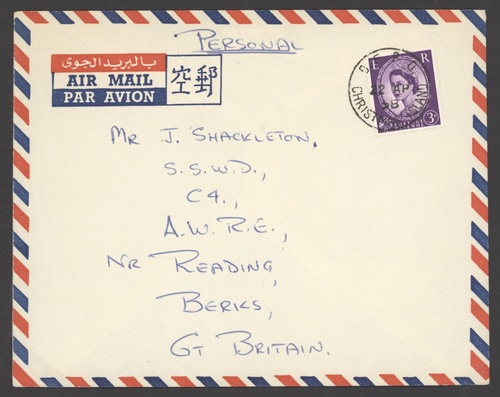 PERSONAL
بالبريد الجوى
AIR MAIL
PAR AVION
空郵
E R
22 AP
58
CHRISTMAS ISLAND
3D
MR J. SHACKLETON,
S.S.W.D.,
C4.,
A.W.R.E.,
NR READING,
BERKS,
GT BRITAIN.